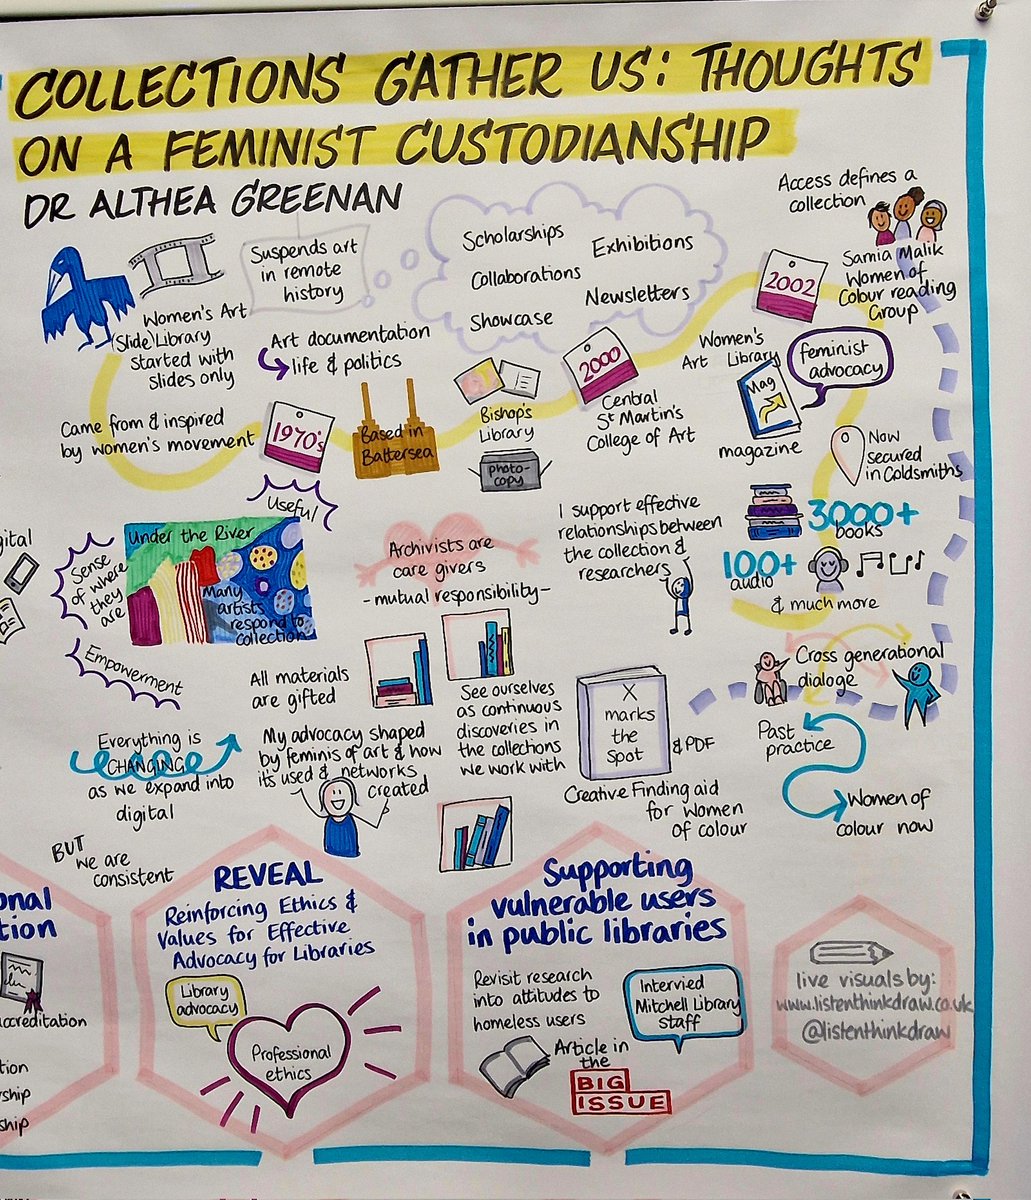 COLLECTIONS GATHER US: THOUGHTS
ON A FEMINIST CUSTODIANSHIP
DR ALTHEA GREENAN
Women's Art
(Slide) Library
started with
slides only
Suspends art
in remote
history
Art documentation
life & politics
Came from & inspired
by women's movement
1970's
Based in
Battersea
Scholarships
Exhibitions
Collaborations
Newsletters
Showcase
Bishop's
Library
photo-
copy
2000
Central
St Martin's
College of Art
2002
Access defines a
collection
Samia Malik
Women of
Colour reading
Group
Women's
Art Library
Mag
magazine
feminist
advocacy
Now
secured
in Goldsmiths
3000+
books
100+
audio
& much more
Useful
Sense
of where
they
are
Empowerment
Under the River
Many
artists
respond to
collection
Archivists are
care givers
- mutual responsibility -
I support effective
relationships between
the collection &
researchers
Cross generational
dialoge
Past
practice
Women of
colour now
All materials
are gifted
See ourselves
as continuous
discoveries in
the collections
we work with
X
marks
the
Spot
& PDF
Creative Finding aid
for women
of colour
Everything is
CHANGING
as we expand into
digital
BUT
we are
consistent
My advocacy shaped
by feminis of art & how
it's used & networks
created
gital
onal
tion
accreditation
tion
rship
ship
REVEAL
Reinforcing Ethics &
Values for Effective
Advocacy for Libraries
Library
advocacy
Professional
ethics
Supporting
vulnerable users
in public libraries
Revisit research
into attitudes to
homeless users
Intervied
Mitchell Library
Staff
Article in
the
BIG
ISSUE
live visuals by:
www.listenthinkdraw.co.uk
@listenthinkdraw